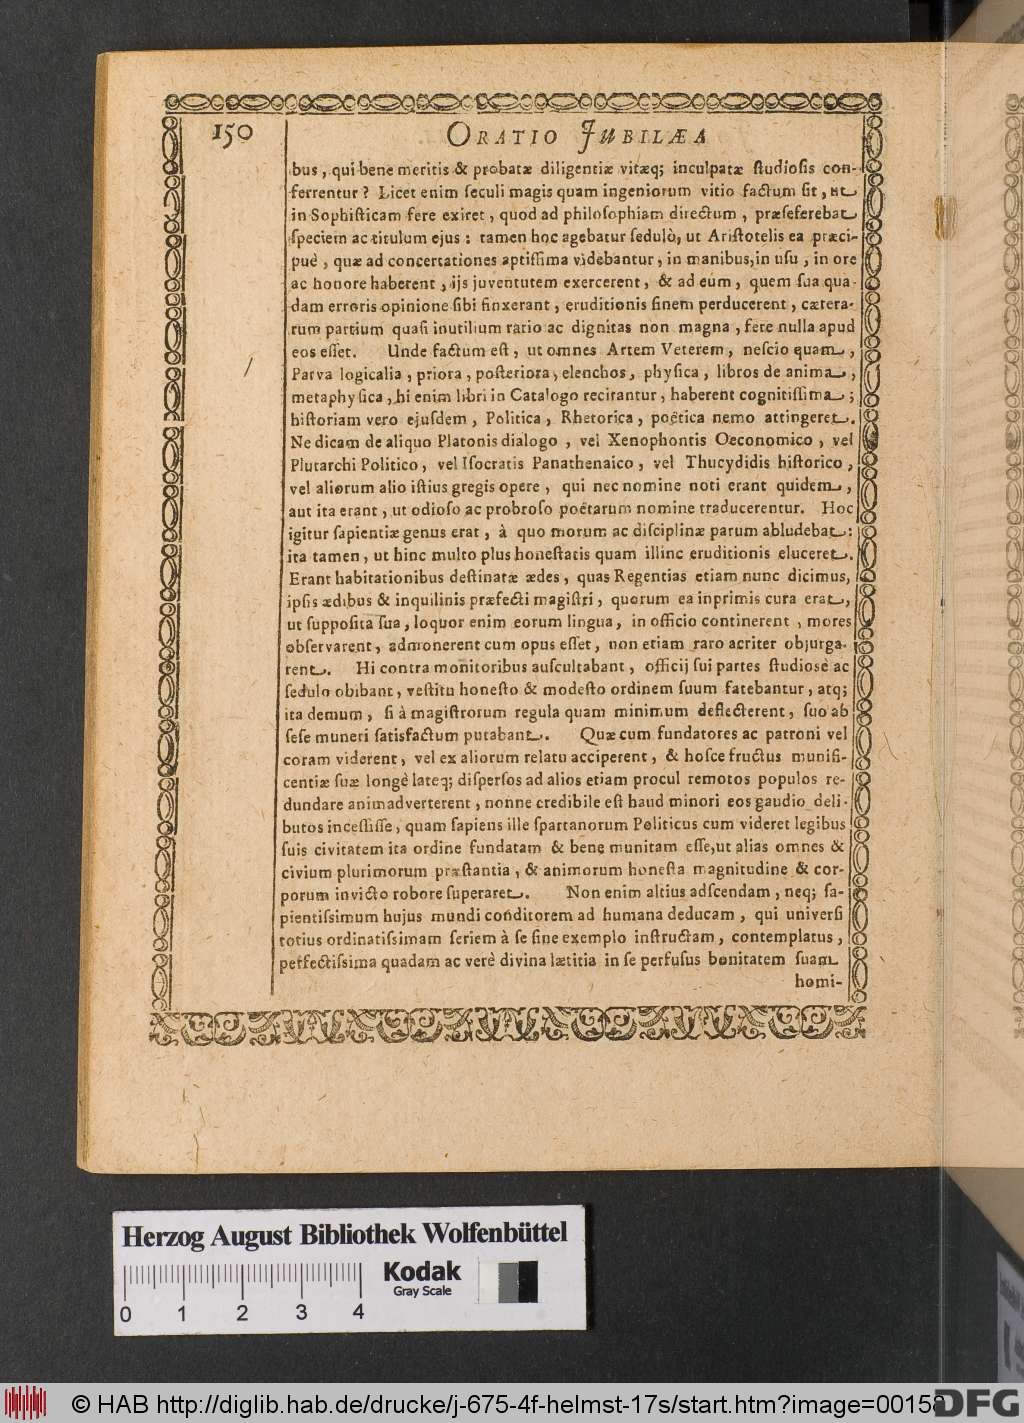 150
ORATIO JUBILÆA
bus, qui bene meritis & probatæ diligentiæ vitæq; inculpatæ ſtudioſis con-
ferrentur? Licet enim ſeculi magis quam ingeniorum vitio factum ſit, ut
in Sophiſticam fere exiret, quod ad philoſophiam directum, præſeferebat
ſpeciem ac titulum ejus: tamen hoc agebatur ſedulò, ut Ariſtotelis ea præci-
puè, quæ ad concertationes aptiſſima videbantur, in manibus, in uſu, in ore
ac honore haberent, ijs juventutem exercerent, & ad eum, quem ſua qua-
dam erroris opinione ſibi finxerant, eruditionis finem perducerent, cætera-
rum partium quaſi inutilium ratio ac dignitas non magna, fere nulla apud
eos eſſet. Unde factum eſt, ut omnes Artem Veterem, neſcio quam,
Parva logicalia, priora, poſteriora, elenchos, phyſica, libros de anima,
metaphyſica, hi enim libri in Catalogo recitantur, haberent cognitiſſima;
hiſtoriam vero ejuſdem, Politica, Rhetorica, poëtica nemo attingeret.
Ne dicam de aliquo Platonis dialogo, vel Xenophontis Oeconomico, vel
Plutarchi Politico, vel Iſocratis Panathenaico, vel Thucydidis hiſtorico,
vel aliorum alio iſtius gregis opere, qui nec nomine noti erant quidem,
aut ita erant, ut odioſo ac probroſo poëtarum nomine traducerentur. Hoc
igitur ſapientiæ genus erat, à quo morum ac diſciplinæ parum abludebat:
ita tamen, ut hinc multo plus honeſtatis quam illinc eruditionis eluceret.
Erant habitationibus deſtinatæ ædes, quas Regentias etiam nunc dicimus,
ipſis ædibus & inquilinis præfecti magiſtri, quorum ea inprimis cura erat,
ut ſuppoſita ſua, loquor enim eorum lingua, in officio continerent, mores
obſervarent, admonerent cum opus eſſet, non etiam raro acriter objurga-
rent. Hi contra monitoribus auſcultabant, officij ſui partes ſtudiosè ac
ſedulo obibant, veſtitu honeſto & modeſto ordinem ſuum fatebantur, atq;
ita demum, ſi à magiſtrorum regula quam minimum deflecterent, ſuo ab
ſeſe muneri ſatisfactum putabant. Quæ cum fundatores ac patroni vel
coram viderent, vel ex aliorum relatu acciperent, & hoſce fructus munifi-
centiæ ſuæ longè lateq; diſperſos ad alios etiam procul remotos populos re-
dundare animadverterent, nonne credibile eſt haud minori eos gaudio deli-
butos inceſſiſſe, quam ſapiens ille ſpartanorum Politicus cum videret legibus
ſuis civitatem ita ordine fundatam & bene munitam eſſe, ut alias omnes &
civium plurimorum præſtantia, & animorum honeſta magnitudine & cor-
porum invicto robore ſuperaret. Non enim altius adſcendam, neq; ſa-
pientiſſimum hujus mundi conditorem ad humana deducam, qui univerſi
totius ordinatiſſimam ſeriem à ſe ſine exemplo inſtructam, contemplatus,
perfectiſſima quadam ac verè divina lætitia in ſe perfuſus bonitatem ſuam
homi-
Herzog August Bibliothek Wolfenbüttel
Kodak
Gray Scale
0 1 2 3 4
© HAB http://diglib.hab.de/drucke/j-675-4f-helmst-17s/start.htm?image=00158
DFG